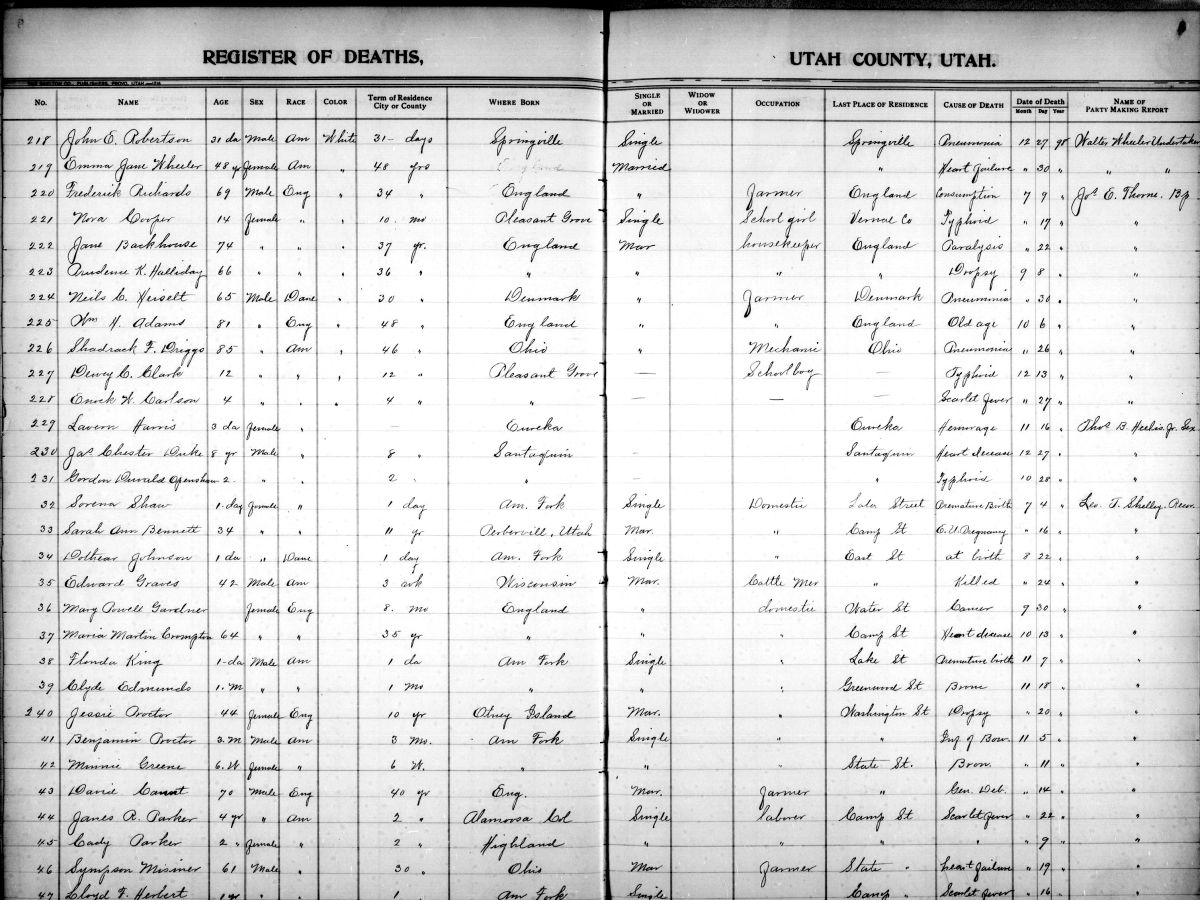 REGISTER OF DEATHS, UTAH COUNTY, UTAH.
No. NAME AGE SEX RACE COLOR Term of Residence City or County WHERE BORN SINGLE OR MARRIED WIDOW OR WIDOWER OCCUPATION LAST PLACE OF RESIDENCE CAUSE OF DEATH Date of Death Month Day Year NAME OF PARTY MAKING REPORT
218 John E. Robertson 31 da Male Am White 31 - days Springville Single Springville Pneumonia 12 27 98 Walter Wheeler Undertaker
219 Emma Jane Wheeler 48 yr Female Am " 48 yrs England Married " Heart Failure " 30 " " "
220 Frederick Richards 69 Male Eng " 34 " England " Farmer England Consumption 7 9 " Jos E. Thorne. Bp
221 Nora Cooper 14 Female " " 10 mo Pleasant Grove Single School girl Vernal Co Typhoid " 17 " "
222 Jane Backhouse 74 " " " 37 yr. England Mar housekeeper England Paralysis " 22 " "
223 Prudence K. Halliday 66 " " " 36 " " " " " Dropsy 9 8 " "
224 Neils C. Heiselt 65 Male Dane " 30 " Denmark " Farmer Denmark Pneumonia " 30 " "
225 Wm H. Adams 81 " Eng " 48 " England " " England Old age 10 6 " "
226 Shadrack F. Driggs 85 " Am " 46 " Ohio " Mechanic Ohio Pneumonia " 26 " "
227 Dewey C. Clark 12 " " " 12 " Pleasant Grove — Schoolboy — Typhoid 12 13 " "
228 Enock W. Carlson 4 " " " 4 " " — — — Scarlet Fever " 27 " "
229 Lavern Harris 3 da Female " — Eureka Eureka Hemorage 11 16 " Thos B. Heelis. Jr. Sex
230 Jas Chester Duke 8 yr Male " 8 " Santaquin — Santaquin Heart disease 12 27 "
231 Gordon Duvald Openshaw 2 " " 2 " " " Typhoid 10 28 " "
32 Sorena Shaw 1-day Female " 1 day Am. Fork Single Domestic Street Premature Birth 7 4 " Leo. T. Shelley. Recor.
33 Sarah Ann Bennett 34 " " 11 yr Utah Mar. " Camp St E.U. Pregnancy " 16 " "
34 Johnson 1 da " Dane 1 day Am. Fork Single " East St at birth 8 22 " "
35 Edward Graves 42 Male Am 3 wk Wisconsin Mar. Cattle Mer " Killed " 24 " "
36 Mary Powell Gardner Female Eng 8. Mo England " domestic Water St Cancer 9 30 " "
37 Maria Martin Crompton 64 " " 35 yr " " " Camp St Heart disease 10 13 " "
38 Flonda King 1-da Male Am 1 da Am Fork Single " Lake St Premature birth 11 7 " "
39 Clyde Edmunds 1. M " " 1 Mo " " " Greenwood St Bronc 11 18 " "
240 Jessie Proctor 44 Female Eng 10 yr Island Mar. " Washington St Dropsy " 20 " "
41 Benjamin Proctor 3. M Male Am 3 Mo. Am Fork Single " " Inf of Bow. 11 5 " "
42 Minnie Greene 6. W Female " 6 W. " " State St. Bron. " 11 " "
43 David 70 Male Eng 40 yr Eng. Mar. Farmer " Gen. Deb. " 14 " "
44 James R. Parker 4 yr " Am 2 " Alamoosa Col Single laborer Camp St Scarlet Fever " 22 " "
45 Cady Parker 2 " Female " 2 " Highland " " " " " 9 " "
46 Sympson Misiner 61 Male " 30 " Ohio Mar Farmer State " heart failure " 19 " "
47 Lloyd F. Herbert 1 yr " " 1 " Am Fork Single Camp " Scarlet Fever " 16 " "